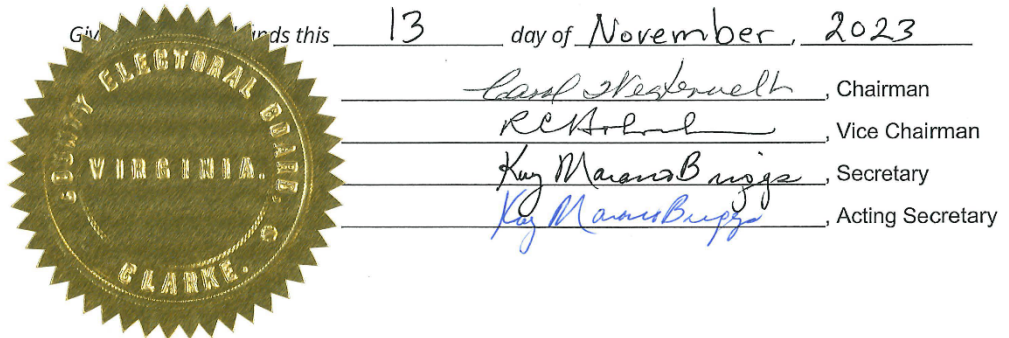 Giv nds this 13 day of November, 2023
, Chairman
, Vice Chairman
Kay Marano Briggs, Secretary
Kay Marano Briggs, Acting Secretary
COUNTY ELECTORAL BOARD,
VIRGINIA.
CLARKE.